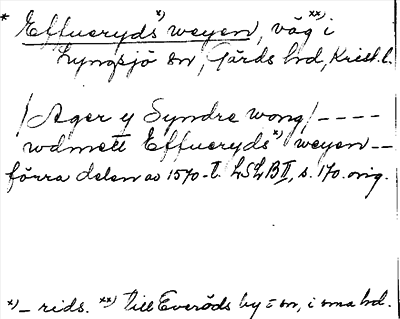 * Effueryds*) weyen, väg**) i
Lyngsjö sn, Gärds hd, Krist. l.
/Ager y Syndre wong/ - - - -
wdmett Effueryds*) weyen - -
förra delen av 1570-t. LSLB II, s. 170. orig.
*) - rids. **) Till Everöds by = sn, i sma hd.